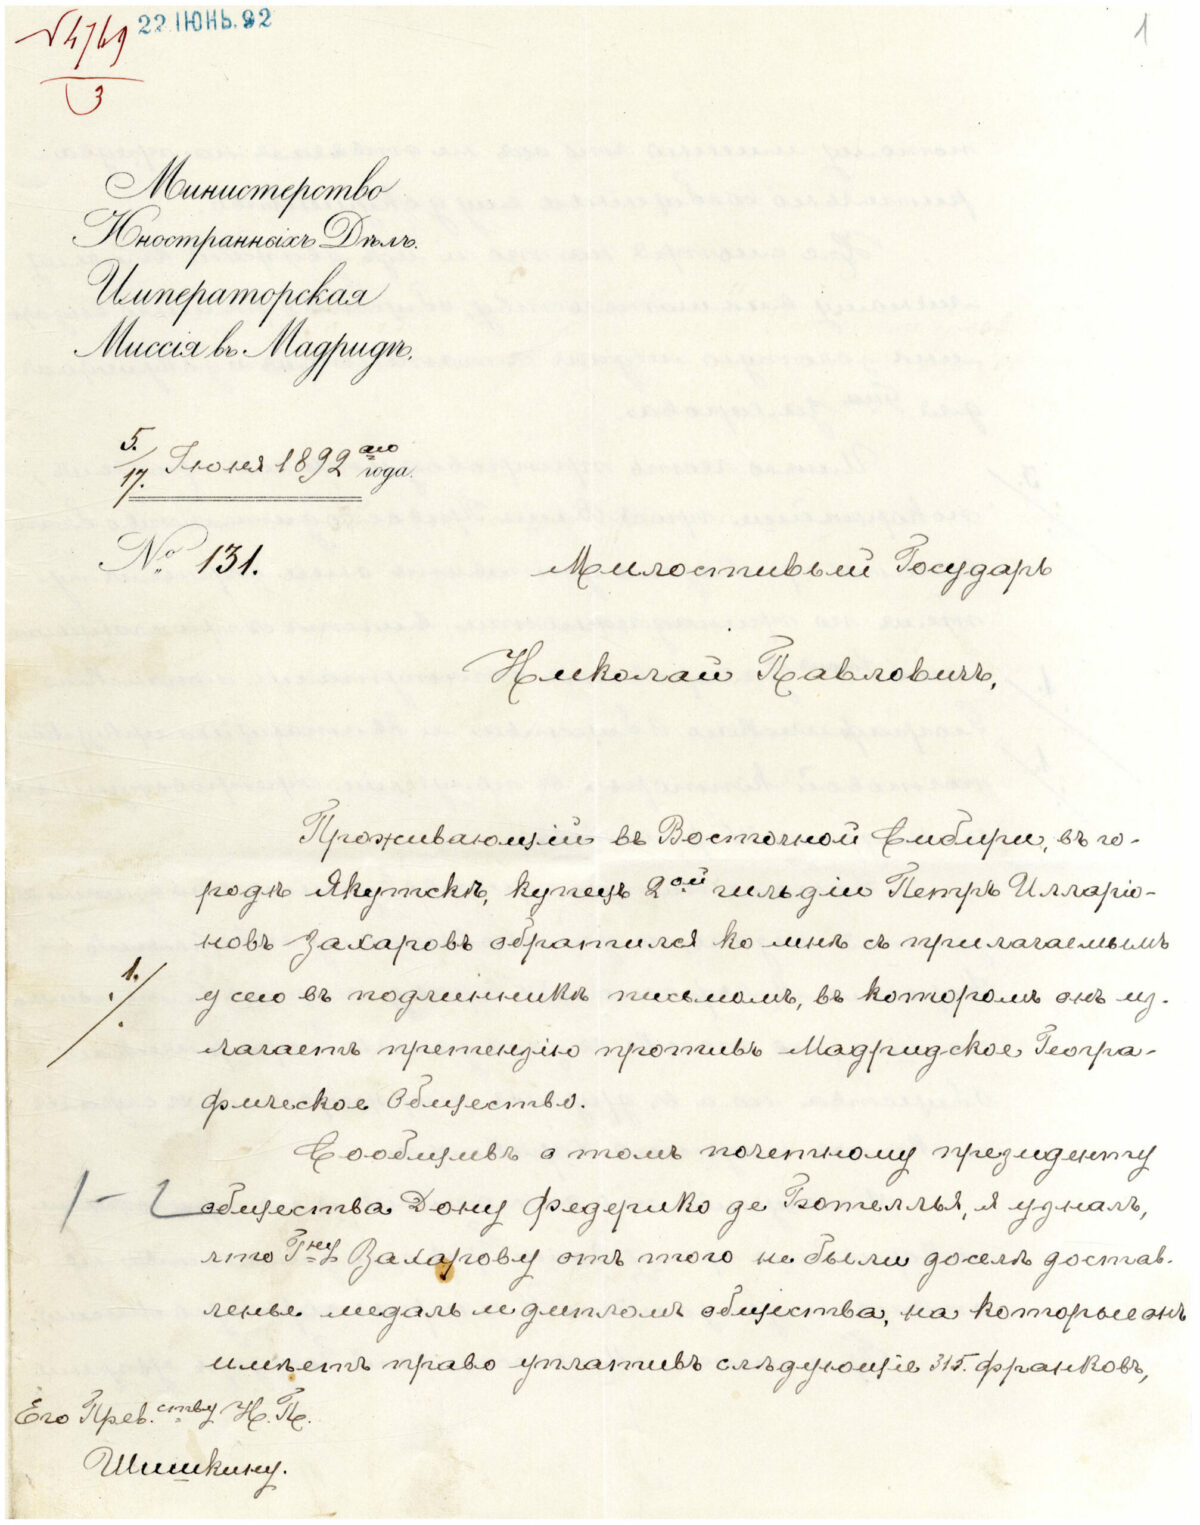 №4769
3
22 ІЮНЬ.92
1
Министерство
Иностранныхъ Дѣлъ.
Императорская
Миссія въ Мадридѣ.
5./17. Іюня 1892 аго года.
№ 131.
Милостивый Государь
Николай Павловичъ,
Проживающій въ Восточной Сибири, въ го-
родѣ Якутскѣ, купецъ 2ой гильдіи Петръ Илларіо-
новъ Захаровъ обратился ко мнѣ съ прилагаемымъ
1.
у сего въ подлинникѣ письмомъ, въ которомъ онъ из-
лагаетъ претензію противъ Мадридское Геогра-
фическое Общество.
Сообщивъ о томъ почетному президенту
1-2
общества Дону Федерико де Ботеллья, я узналъ,
что Гну Захарову отъ того не были доселѣ достав-
лены медаль и дипломъ общества, на которые онъ
имѣетъ право уплативъ слѣдующіе 315. франковъ,
Его Прев.ству Н. П.
Шишкину.